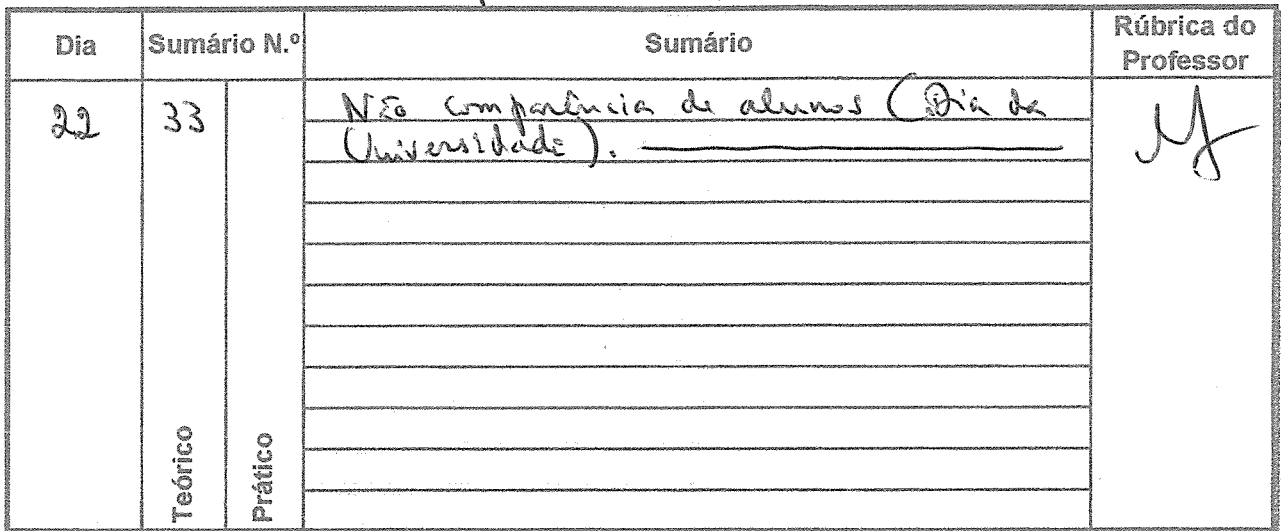 Dia Sumário N.º Sumário Rúbrica do
Professor
22 33 Não comparência de alunos (Dia da
Universidade).
Teórico Prático